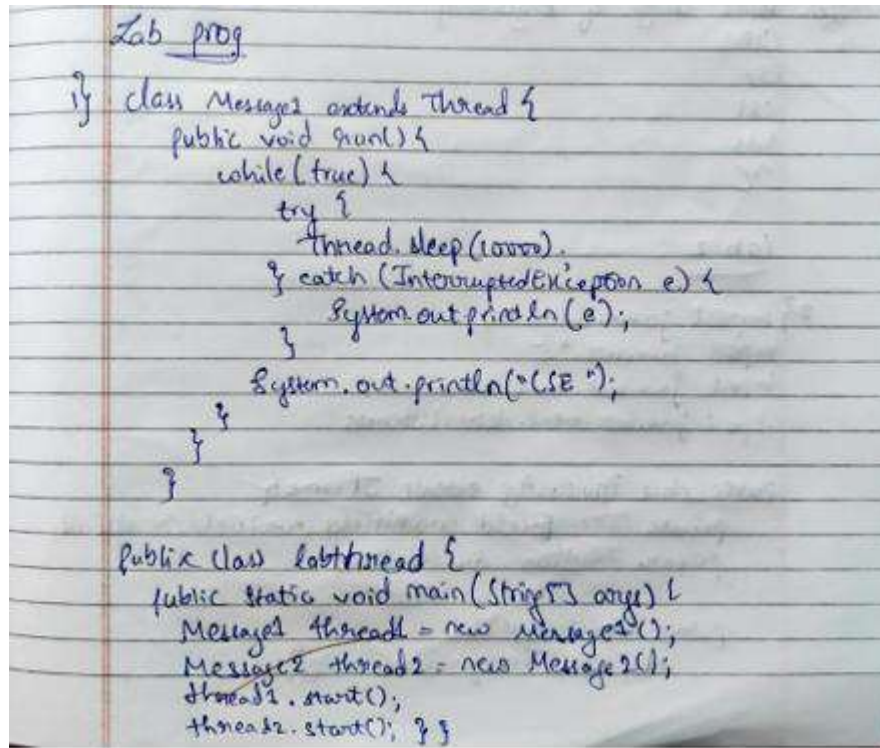 Lab prog
1} class Message1 extends Thread {
public void run() {
while (true) {
try {
Thread.sleep(10000).
} catch (InterruptedException e) {
System.out println(e);
}
System.out.println("CSE ");
}
}
}
public class labthread {
public static void main(String[] args) {
Message1 thread1 = new Message1();
Message2 thread2 = new Message2();
thread1.start();
thread2.start(); } }